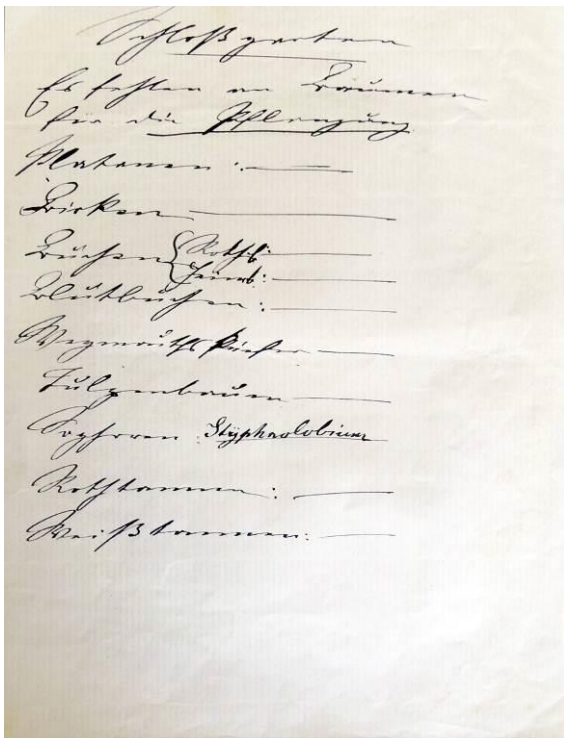 Schloßgarten
Es fehlen an Bäumen
für die Pflanzung
Platanen :
Birken
Buchen { Rothb:
Hainb:
Blutbuchen :
Weymouths Kiefer
Tulpenbaum
Sophoren Styphnolobium
Rothtannen :
Weißtannen :